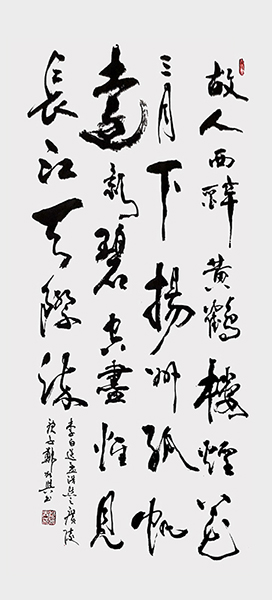 故人西辭黃鶴樓煙花
三月下揚州孤帆
遠影碧空盡惟見
長江天際流
李白送孟浩然之廣陵
書